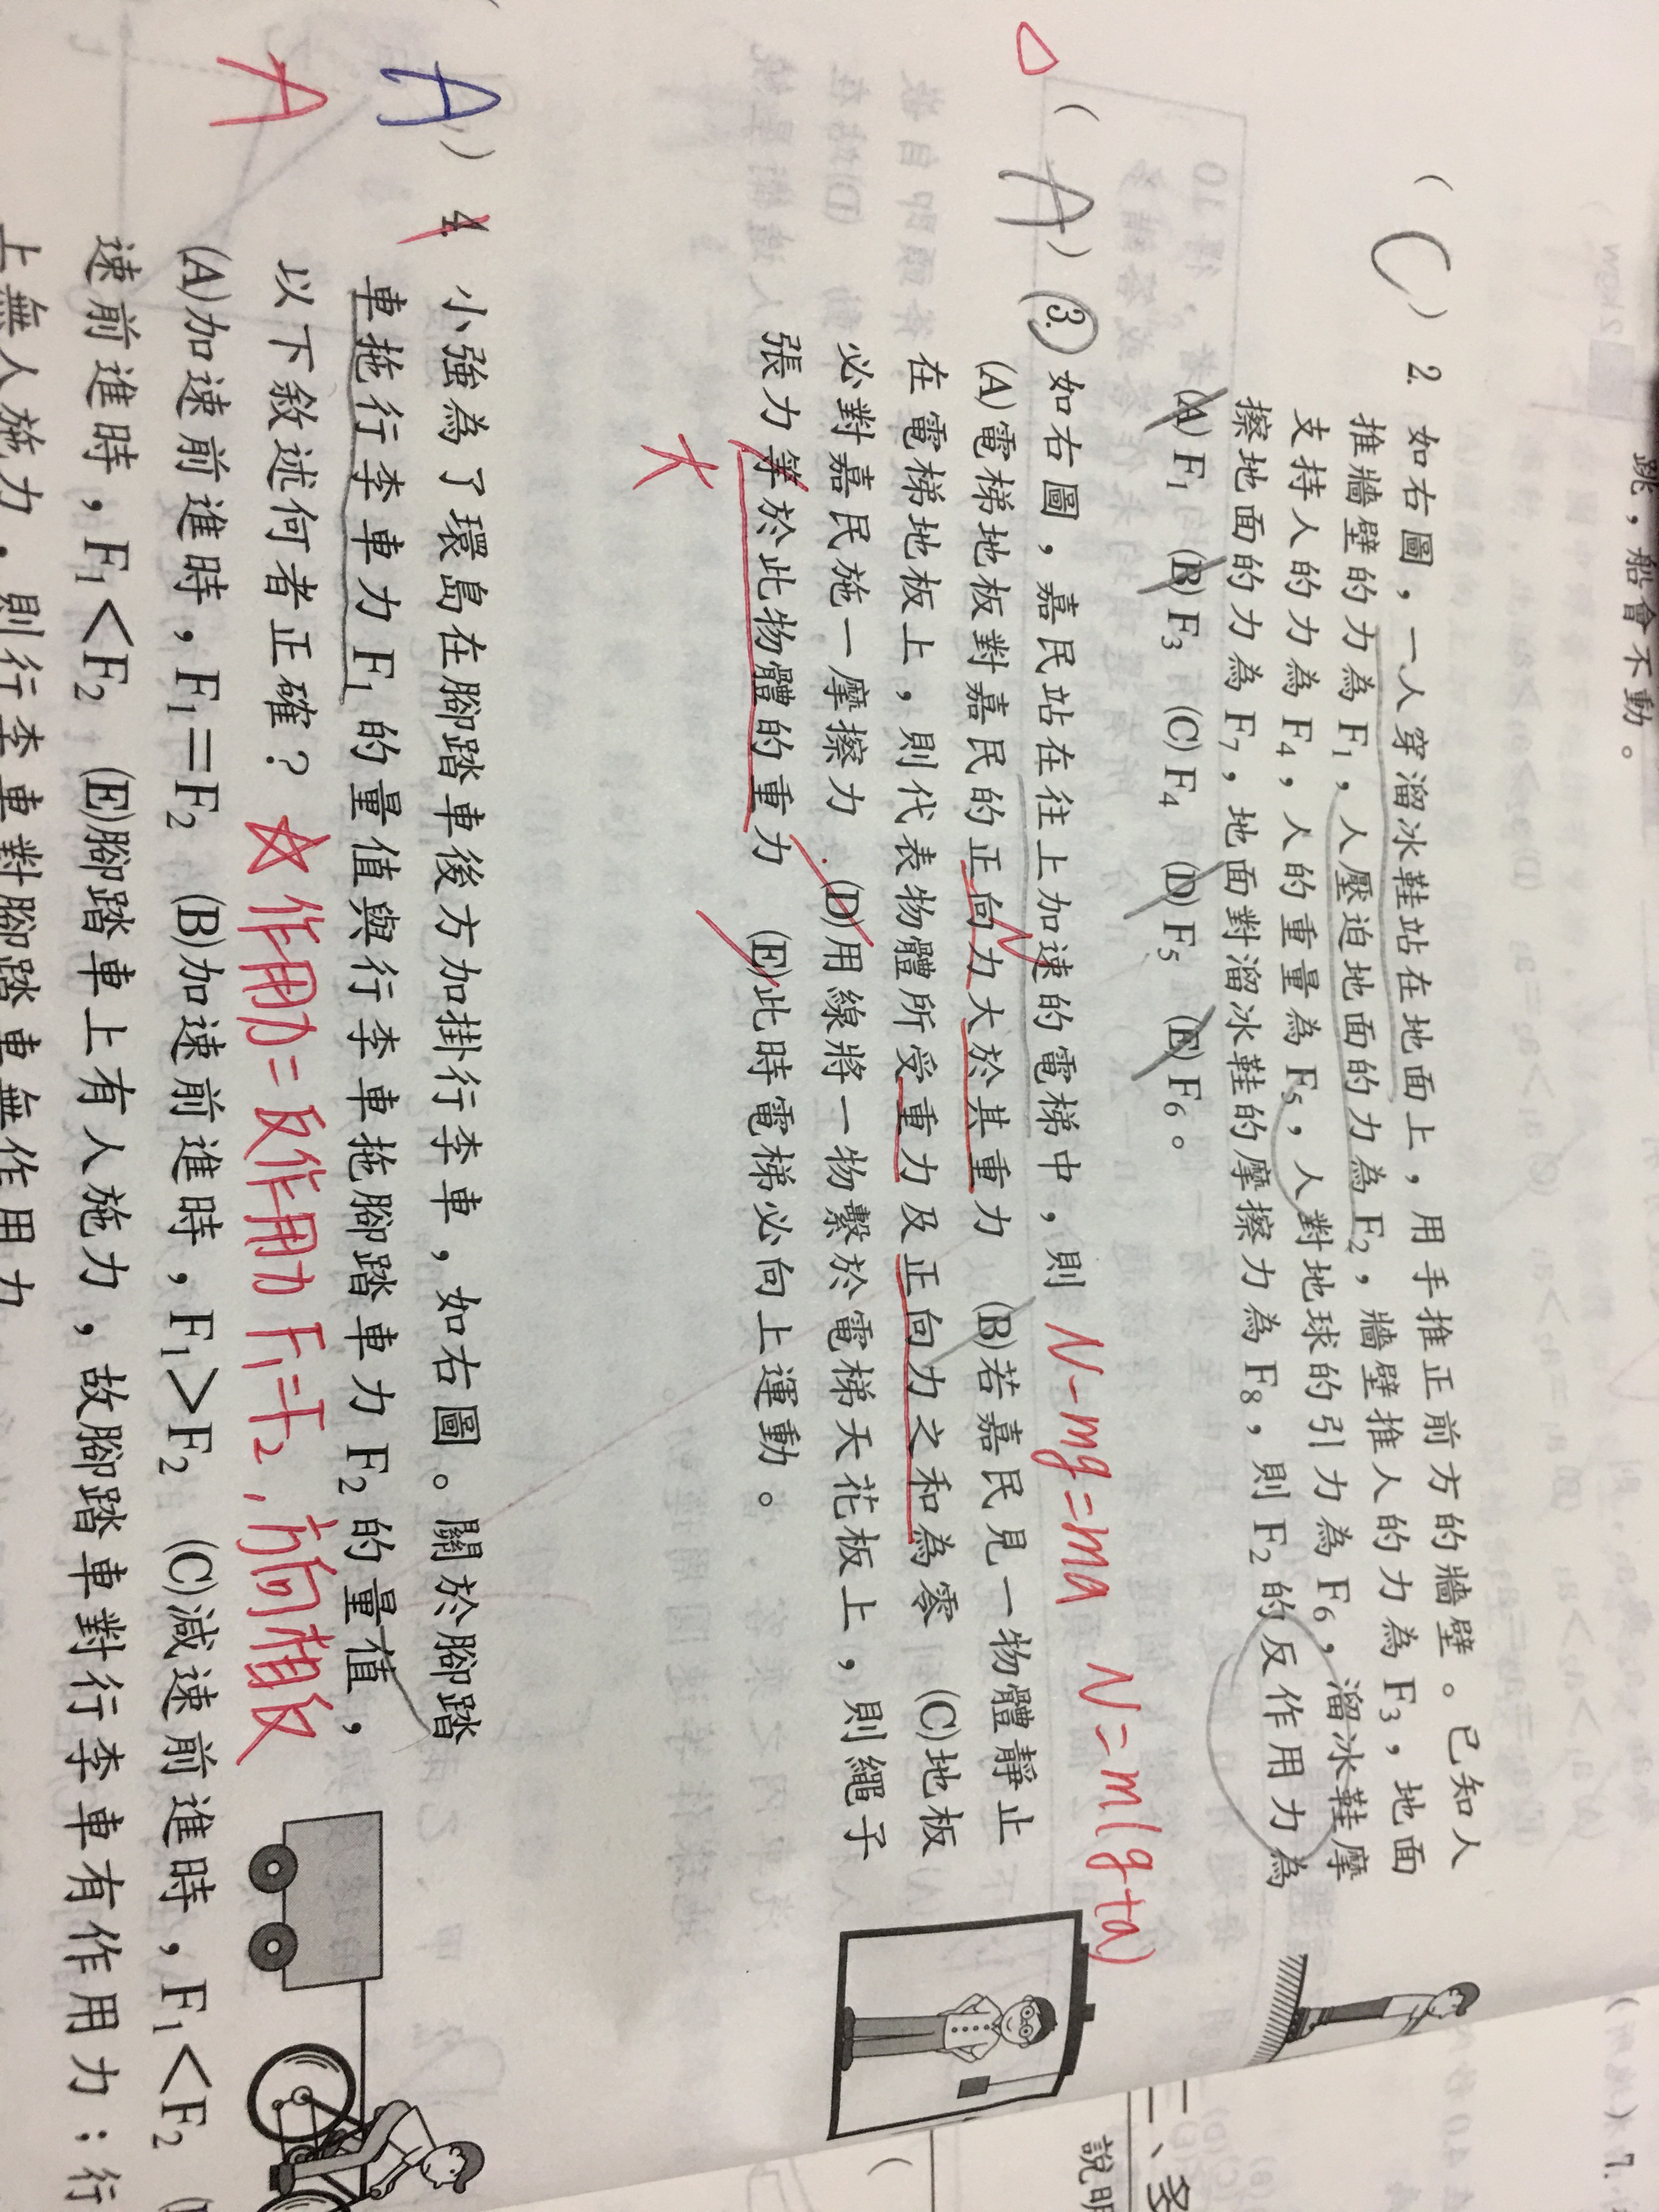 跳，船會不動。
( C ) 2. 如右圖，一人穿溜冰鞋站在地面上，用手推正前方的牆壁。已知人
推牆壁的力為F₁，人壓迫地面的力為F₂，牆壁推人的力為F₃，地面
支持人的力為F₄，人的重量為F₅，人對地球的引力為F₆，溜冰鞋摩
擦地面的力為F₇，地面對溜冰鞋的摩擦力為F₈，則F₂的反作用力為
(A)F₁ (B)F₃ (C)F₄ (D)F₅ (E)F₆。
N-mg=ma N=m(g+a)
( A ) 3. 如右圖，嘉民站在往上加速的電梯中，則
(A)電梯地板對嘉民的正向力大於其重力 (B)若嘉民見一物體靜止
N
在電梯地板上，則代表物體所受重力及正向力之和為零 (C)地板
必對嘉民施一摩擦力 (D)用線將一物繫於電梯天花板上，則繩子
張力等於此物體的重力 (E)此時電梯必向上運動。
大
A ) 4. 小強為了環島在腳踏車後方加掛行李車，如右圖。關於腳踏
車拖行李車力F₁的量值與行李車拖腳踏車力F₂的量值，
以下敘述何者正確？ ☆ 作用力=反作用力 F₁=F₂，方向相反
A
(A)加速前進時，F₁＝F₂ (B)加速前進時，F₁＞F₂ (C)減速前進時，F₁＜F₂
速前進時，F₁＜F₂ (E)腳踏車上有人施力，故腳踏車對行李車有作用力；行
上無人施力，則行李車對腳踏車無作用力
二、多
說明
7.